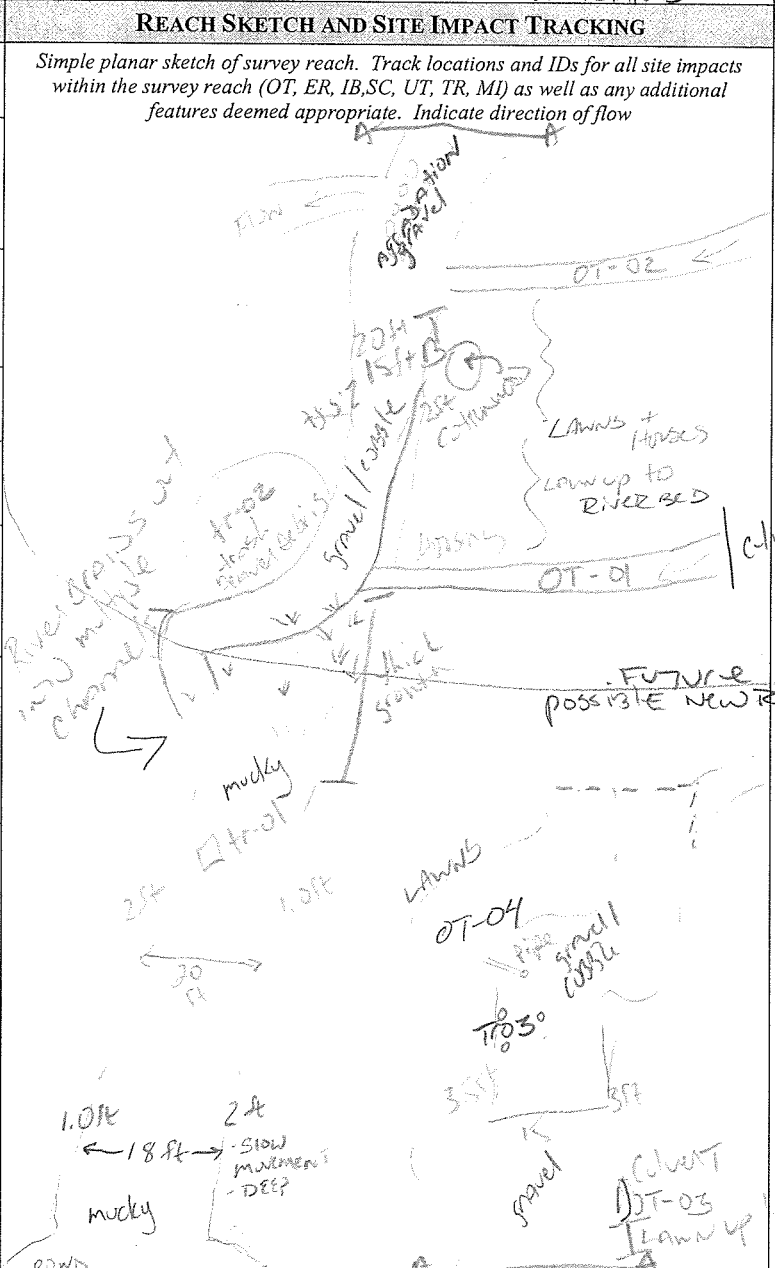 REACH SKETCH AND SITE IMPACT TRACKING
Simple planar sketch of survey reach. Track locations and IDs for all site impacts
within the survey reach (OT, ER, IB,SC, UT, TR, MI) as well as any additional
features deemed appropriate. Indicate direction of flow
A A
Aggradation
gravel
FLOW
OT-02
20ft
15ft
2.5ft
25ft
cottonwood
LAWNS +
HOUSES
LAWN up to
RIVER BED
gravel/cobble
tr-02
trash
OT-01
River
into multiple
channels
thick
growth
. Future
possible NEW R
mucky
tr-01
2ft
1.0ft
LAWNS
OT-04
pipe
gravel
cobble
20
ft
Tr03
3.5ft
3ft
15
1.0ft
2ft
18ft
- SLOW
MOVEMENT
- DEEP
mucky
gravel
CULVERT
OT-03
LAWN UP
POND
A A